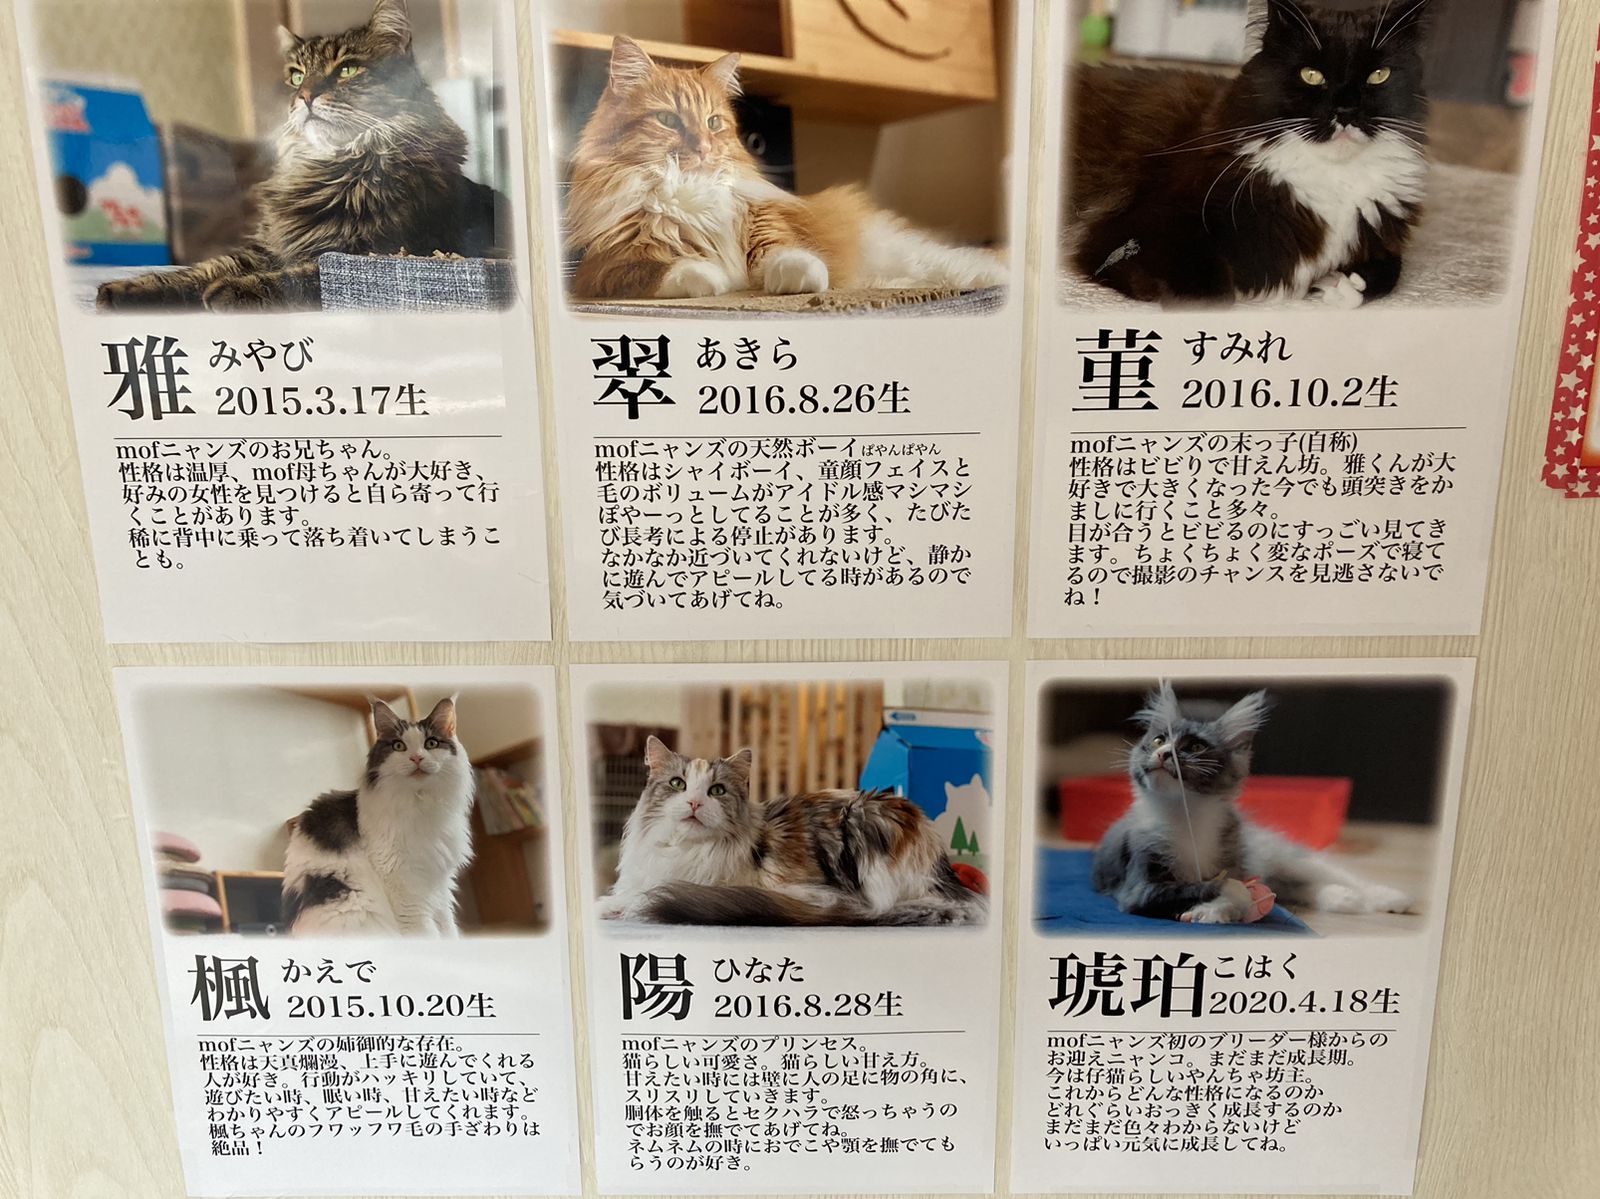 雅 みやび
2015.3.17生
mofニャンズのお兄ちゃん。
性格は温厚、mof母ちゃんが大好き、
好みの女性を見つけると自ら寄って行
くことがあります。
稀に背中に乗って落ち着いてしまうこ
とも。
翠 あきら
2016.8.26生
mofニャンズの天然ボーイぽやんぽやん
性格はシャイボーイ、童顔フェイスと
毛のボリュームがアイドル感マシマシ
ぽやーっとしてることが多く、たびた
び長考による停止があります。
なかなか近づいてくれないけど、静か
に遊んでアピールしてる時があるので
気づいてあげてね。
菫 すみれ
2016.10.2生
mofニャンズの末っ子(自称)
性格はビビりで甘えん坊。雅くんが大
好きで大きくなった今でも頭突きをか
ましに行くこと多々。
目が合うとビビるのにすっごい見てき
ます。ちょくちょく変なポーズで寝て
るので撮影のチャンスを見逃さないで
ね！
楓 かえで
2015.10.20生
mofニャンズの姉御的な存在。
性格は天真爛漫、上手に遊んでくれる
人が好き。行動がハッキリしていて、
遊びたい時、眠い時、甘えたい時など
わかりやすくアピールしてくれます。
楓ちゃんのフワッフワ毛の手ざわりは
絶品！
陽 ひなた
2016.8.28生
mofニャンズのプリンセス。
猫らしい可愛さ。猫らしい甘え方。
甘えたい時には壁に人の足に物の角に、
スリスリしていきます。
胴体を触るとセクハラで怒っちゃうの
でお顔を撫でてあげてね。
ネムネムの時におでこや顎を撫でても
らうのが好き。
琥珀 こはく
2020.4.18生
mofニャンズ初のブリーダー様からの
お迎えニャンコ。まだまだ成長期。
今は仔猫らしいやんちゃ坊主。
これからどんな性格になるのか
どれぐらいおっきく成長するのか
まだまだ色々わからないけど
いっぱい元気に成長してね。